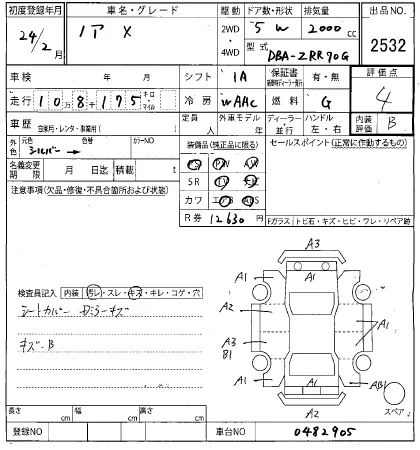 初度登録年月
車名・グレード
駆動
ドア数・形状
排気量
出品NO.
24/2月
ノア X
2WD
・
4WD
5 W
2000 cc
型式
DBA-ZRR70G
2532
車検
年 月
シフト
IA
保証書
有・無
評価点
4
走行
10万8千175
キロ
・
マイル
冷房
WAAC
燃料
G
内装
評価
B
車歴
自家用・レンタ・事業用( )
定員
人
外車モデル
年
ディーラー
・並行
ハンドル
左・右
外色
元色
シルバー
色替
→
カラーNO
装備品(純正品に限る)
セールスポイント(正常に作動するもの)
名義変更
期限
月 日迄
積載
t
PS PW AW
SR TV
カワ
R券 12630
注意事項(欠品・修復・不具合箇所および状態)
Fガラス
トビ石・キズ・ヒビ・ワレ・リペア跡
検査員記入
内装
汚レ・スレ・キズ・キレ・コゲ・穴
シートカバー Dミラーキズ
キズ・B
A3
A1 A1 A1
A2
A3
B1
A1
A1 A1 AB1
A2
スペア
長さ cm
幅 cm
高さ cm
登録NO
車台NO
0482905